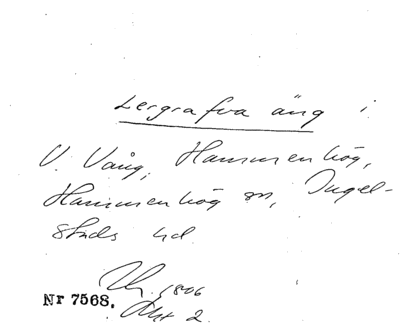 Lergrafva äng i
V. Vång, Hammenhög,
Hammenhög sn, Ingel-
stads hd
1806
Nr 7568. Akt 2.